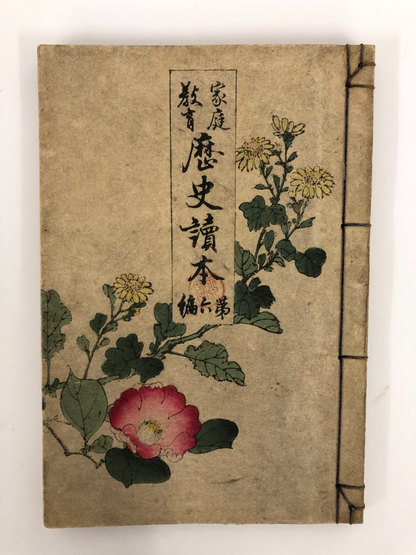 家庭
教育
歴史讀本
第六編